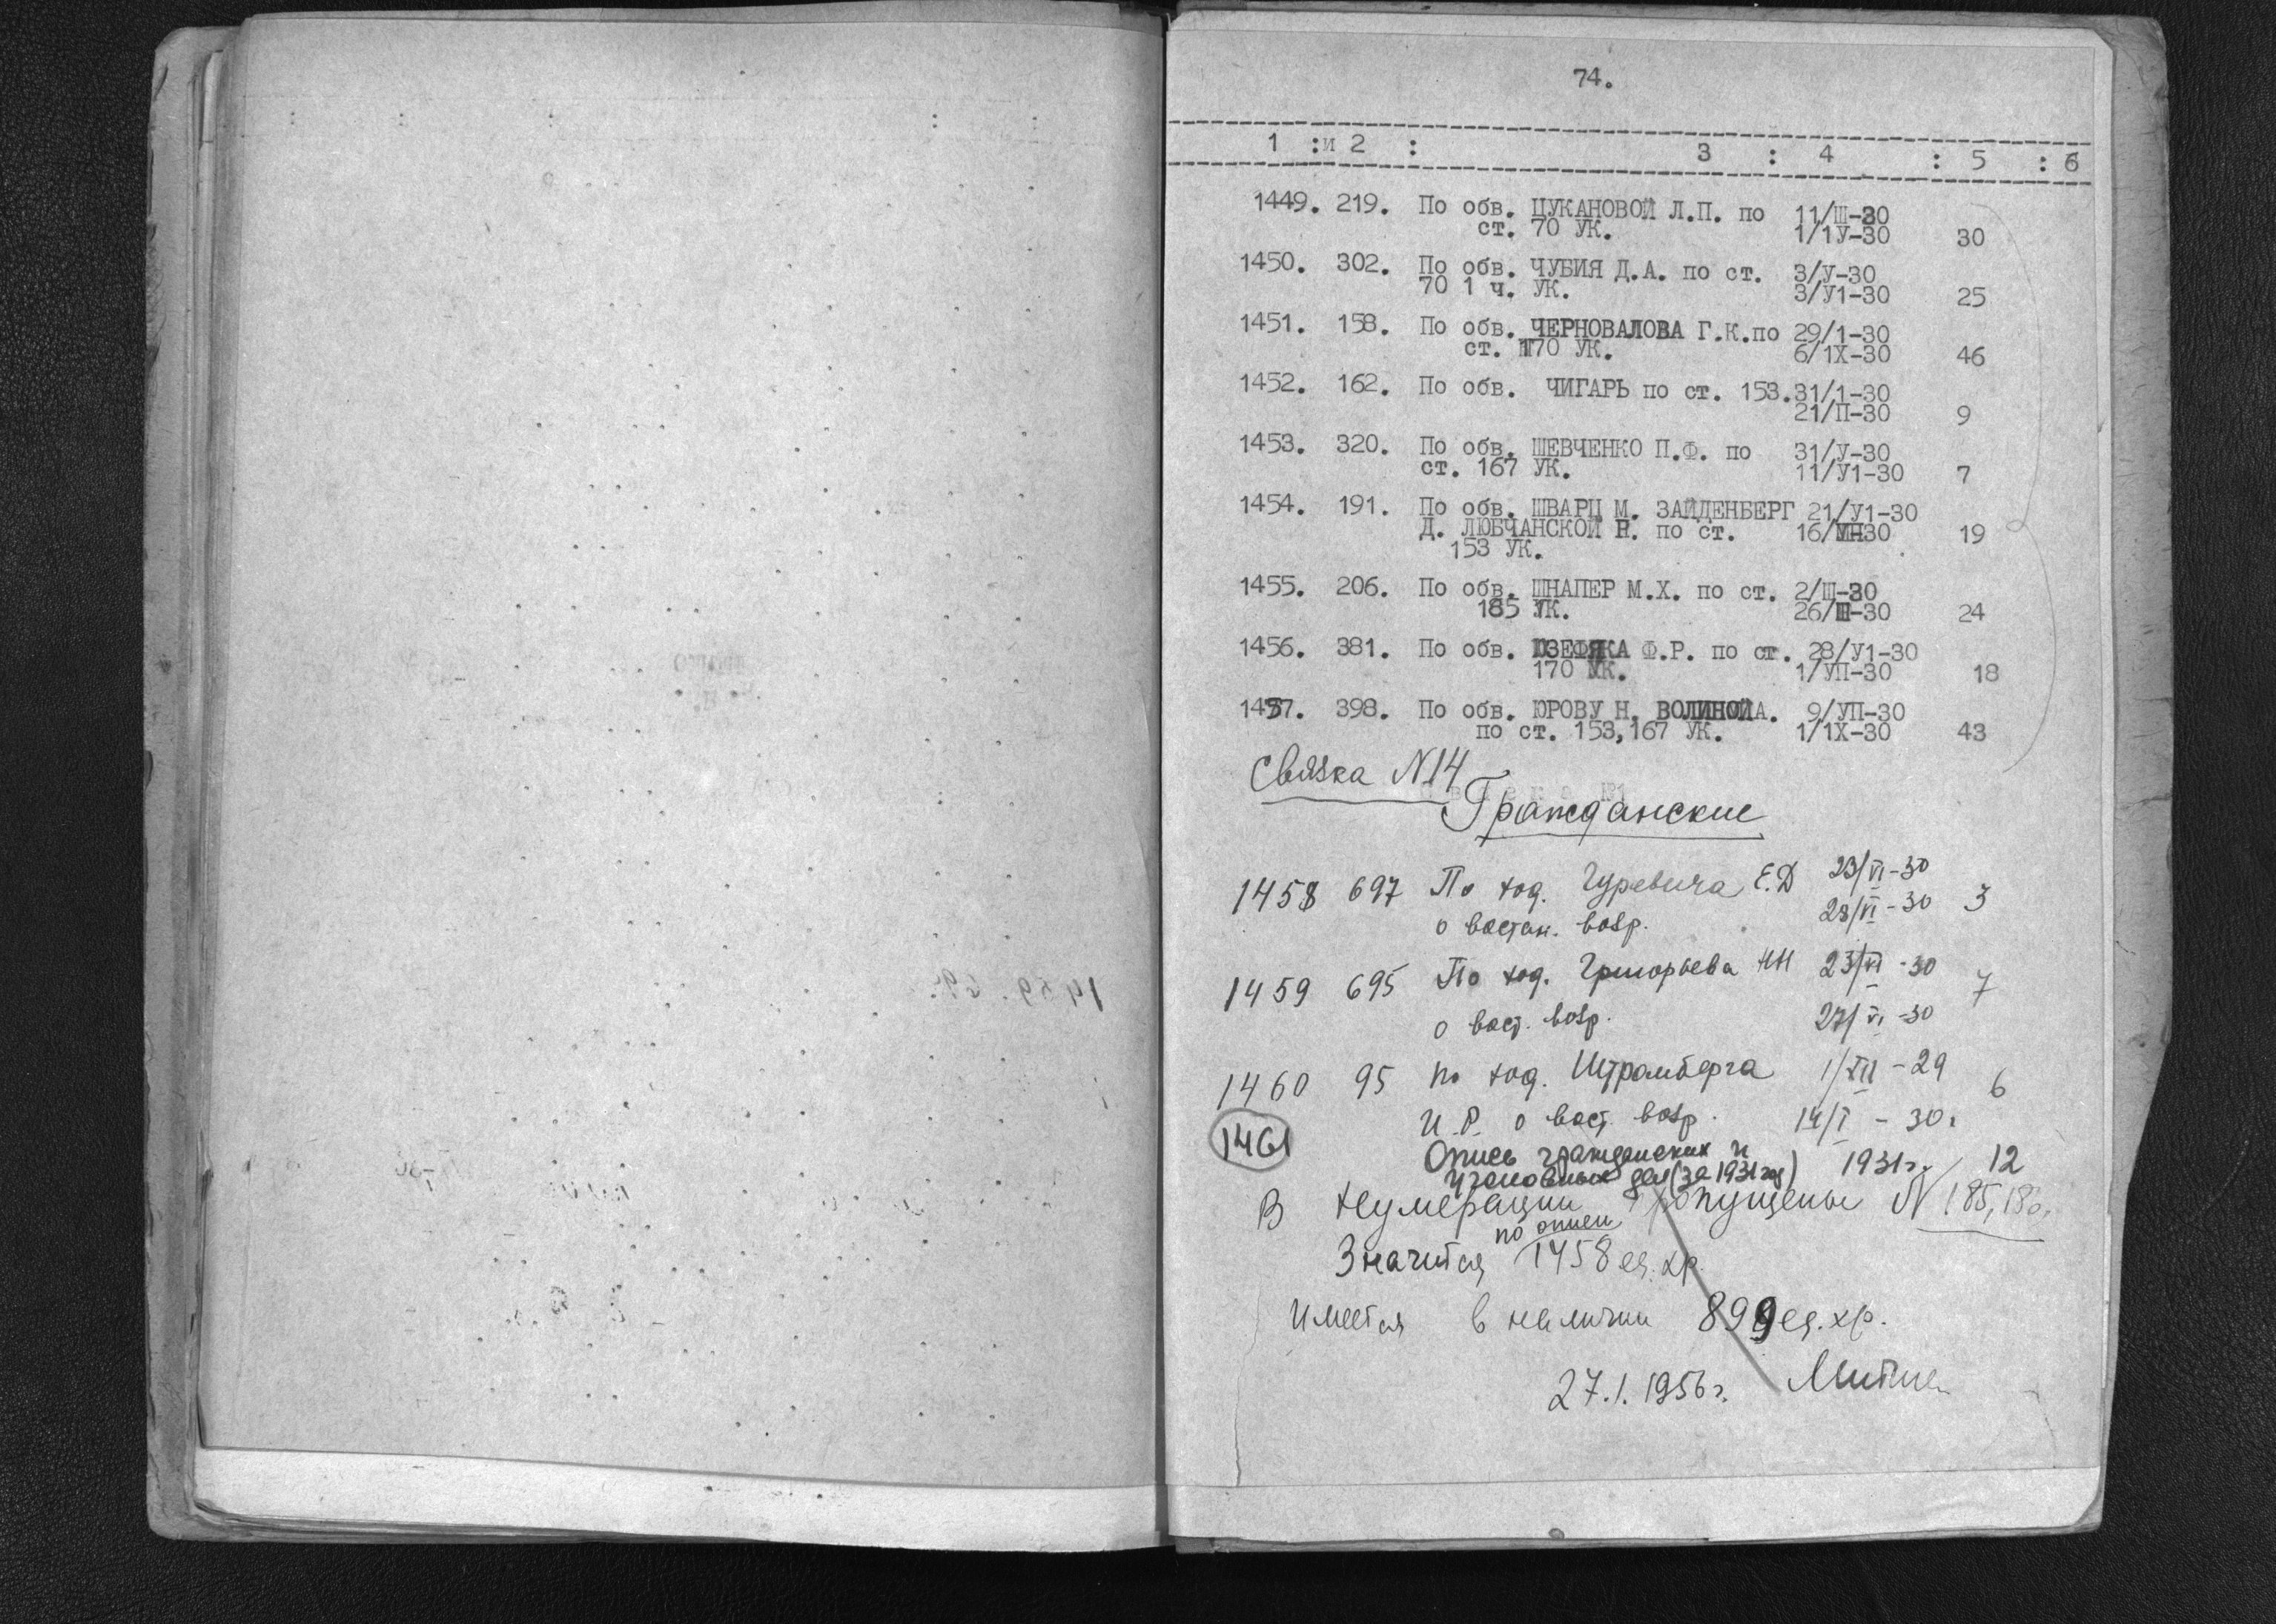 74.
1 :и 2 : 3 : 4 : 5 : 6
1449. 219. По обв. ЦУКАНОВОЙ Л.П. по 11/Ш-30
ст. 70 УК. 1/1У-30 30
1450. 302. По обв. ЧУБИЯ Д.А. по ст. 3/У-30
70 1 ч. УК. 3/У1-30 25
1451. 158. По обв. ЧЕРНОВАЛОВА Г.К.по 29/1-30
ст. 170 УК. 6/1Х-30 46
1452. 162. По обв. ЧИГАРЬ по ст. 153.31/1-30
21/П-30 9
1453. 320. По обв. ШЕВЧЕНКО П.Ф. по 31/У-30
ст. 167 УК. 11/У1-30 7
1454. 191. По обв. ШВАРЦ М. ЗАЙДЕНБЕРГ 21/У1-30
Д. ЛЮБЧАНСКОЙ Н. по ст. 19
153 УК.
1455. 206. По обв. ШНАПЕР М.Х. по ст. 2/Ш-30
185 УК. 26/Ш-30 24
1456. 381. По обв. ЮЗЕФЯКА Ф.Р. по ст. 28/У1-30
170 УК. 1/УП-30 18
1457. 398. По обв. ЮРОВУ Н. ВОЛИНОЙ А. 9/УП-30
по ст. 153,167 УК. 1/1Х-30 43
Связка N14
Гражданские
1458 697 По ход. Гуревича Е.Д 23/VI-30
о востан. возр. 28/VI-30 3
1459 695 По ход. Григорьева НН 23/VI-30 7
о вост. возр. 27/VI-30
1460 95 по ход. Штромберга 1/XII-29 6
И.Р. о вост. возр. 14/I-30г
1461 Опись гражданских и 1931г. 12
уголовных дел (за 1931 год)
В нумерации пропущены N 185, 186.
по описи
Значится 1458 ед. хр.
Имеется в наличии 899 ед. хр.
27.1.1956г.